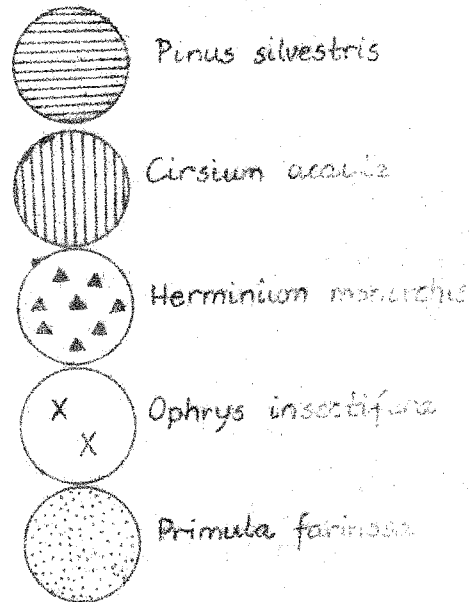 Pinus silvestris
Cirsium acaule
Herminium monorchis
X
X
Ophrys insectifera
Primula farinosa